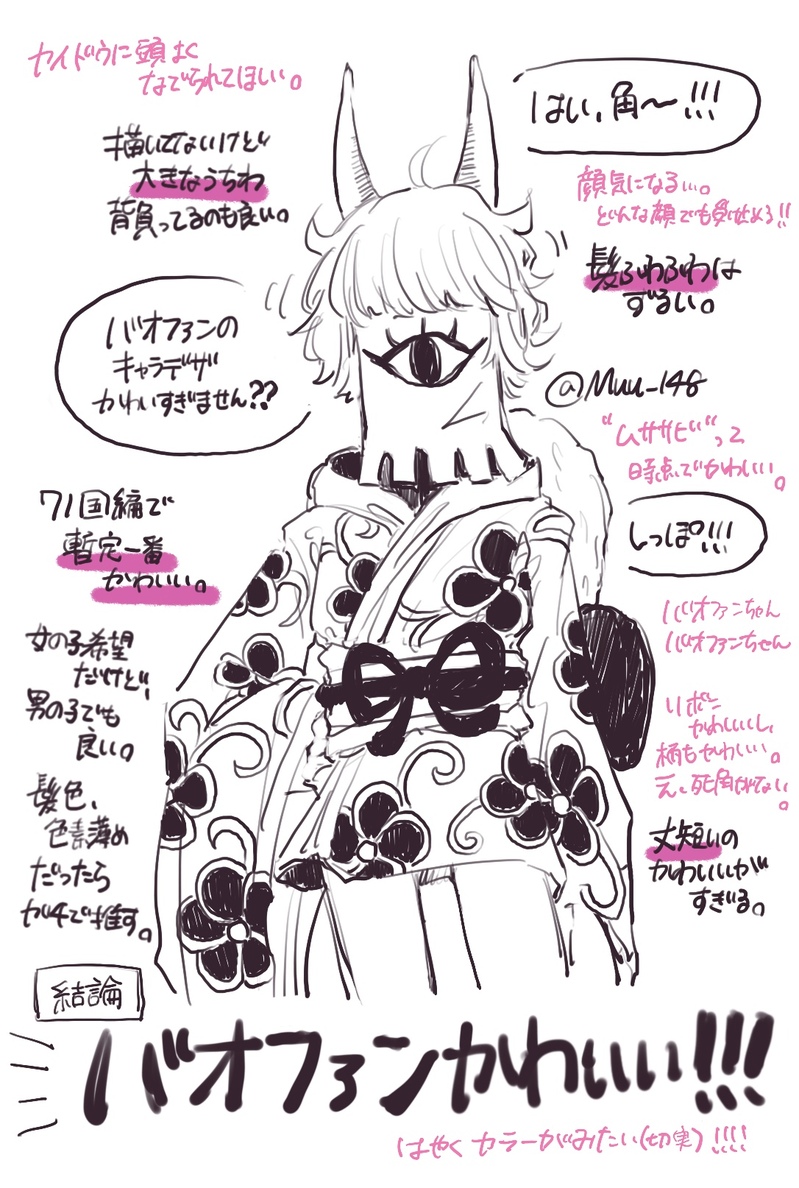 セイドウに頭よく
なでられてほしい。
描いてないけど
大きなうちわ
背負ってるのも良い。
はい、角〜!!!
顔気になるぅ。
どんな顔でも受け止める!!
髪ふわふわは
ずるい。
バオファンの
キャラデザ
かわいすぎません??
@Muu_148
"ムササビ"って
時点でかわいい。
しっぽ!!!
ワノ国編で
暫定一番
かわいい。
バオファンちゃん
バオファンちゃん
女の子希望
だけど、
男の子でも
良い。
リボン
かわいいし、
柄もかわいい。
え、死角がない。
髪色、
色素薄め
だったら
ガチで推す。
丈短いの
かわいいが
すぎる。
結論
バオファンかわいい!!!
はやくカラーがみたい(切実)!!!!